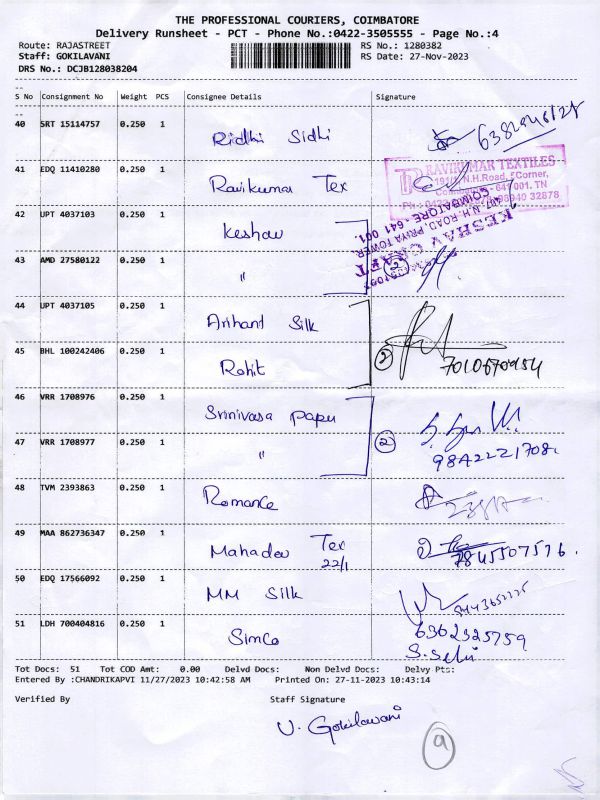 THE PROFESSIONAL COURIERS, COIMBATORE
Delivery Runsheet - PCT - Phone No.:0422-3505555 - Page No.:4
Route: RAJASTREET RS No.: 1280382
Staff: GOKILAVANI RS Date: 27-Nov-2023
DRS No.: DCJB128038204
S No Consignment No Weight PCS Consignee Details Signature
40 SRT 15114757 0.250 1 Ridhi Sidhi
41 EDQ 11410280 0.250 1 Ravikuma Tex
RAVIKUMAR TEXTILES
N.H.Road, Corner,
641 001. TN
42 UPT 4037103 0.250 1 Keshav
KESHAV
N.H. ROAD, PRIYA TOWER,
COIMBATORE - 641 001.
43 AMD 27580122 0.250 1 " 2
44 UPT 4037105 0.250 1 Arihant Silk
45 BHL 100242406 0.250 1 Rohit 2 7010670954
46 VRR 1708976 0.250 1 Srinivasa papu
47 VRR 1708977 0.250 1 " 2
48 TVM 2393863 0.250 1 Romance
49 MAA 862736347 0.250 1 Mahadev Tex 22/1 7845507576.
50 EDQ 17566092 0.250 1 MM Silk
51 LDH 700404816 0.250 1 Simco 6362325759
S.Selvi
Tot Docs: 51 Tot COD Amt: 0.00 Delvd Docs: Non Delvd Docs: Delvy Pts:
Entered By :CHANDRIKAPVI 11/27/2023 10:42:58 AM Printed On: 27-11-2023 10:43:14
Verified By Staff Signature
V. Gokilavani
9